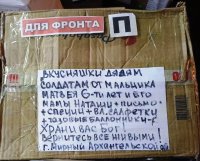 ДЛЯ ФРОНТА
П
ВКУСНЯШКИ ДЯДЯМ
СОЛДАТАМ ОТ МАЛЬЧИКА
МАТВЕЯ 6-ТИ ЛЕТ И ЕГО
МАМЫ НАТАШИ + ПИСЬМО +
+ СПЕЦИИ + ВЛ. САЛФЕТКИ
+ ГАЗОВЫЕ БАЛЛОНЧИКИ
ХРАНИ ВАС БОГ!
ВЕРНИТЕСЬ ВСЕ ЖИВЫМИ!
г. МИРНЫЙ АРХАНГЕЛЬСКОЙ